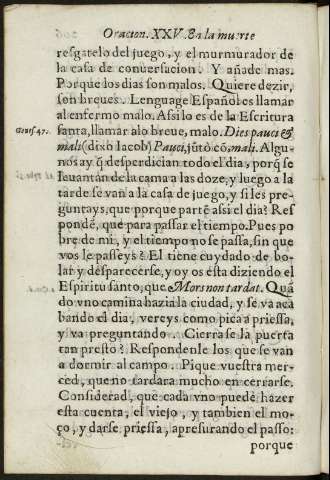 Oracion. XXV. En la muerte
resgatelo del juego, y el murmurador de
la casa de conuersacion. Y añade mas.
Porque los dias son malos. Quiere dezir,
son breues. Lenguage Español es llamar
al enfermo malo. Assi lo es de la Escritura
Genes. 47. santa, llamar a lo breue, malo. Dies pauci &
mali (dixo Iacob) Pauci, jũto cõ, mali. Algu-
nos ay q̃ desperdician todo el dia, porq̃ se
leuantãn de la cama a las doze, y luego a la
tarde se van a la casa de juego, y si les pre-
guntays, que porque partẽ assi el dia? Res
pondẽ, que para passar el tiempo. Pues po
bre de mi, y el tiempo no se passa, sin que
vos le passeys? El tiene cuydado de bo-
lar y desparecerse, y oy os esta diziendo el
Espiritu santo, que Mors non tardat. Quã
do vno camina hazia la ciudad, y se va aca
bando el dia, vereys como pica a priessa,
y va preguntando. Cierrase la puerta
tan presto? Respondenle los que se van
a dormir al campo. Pique vuestra mer-
ced, que no tardara mucho en cerrarse.
Considerad, que cada vno puede hazer
esta cuenta, el viejo, y tambien el mo-
ço, y darse priessa, apresurando el passo:
porque